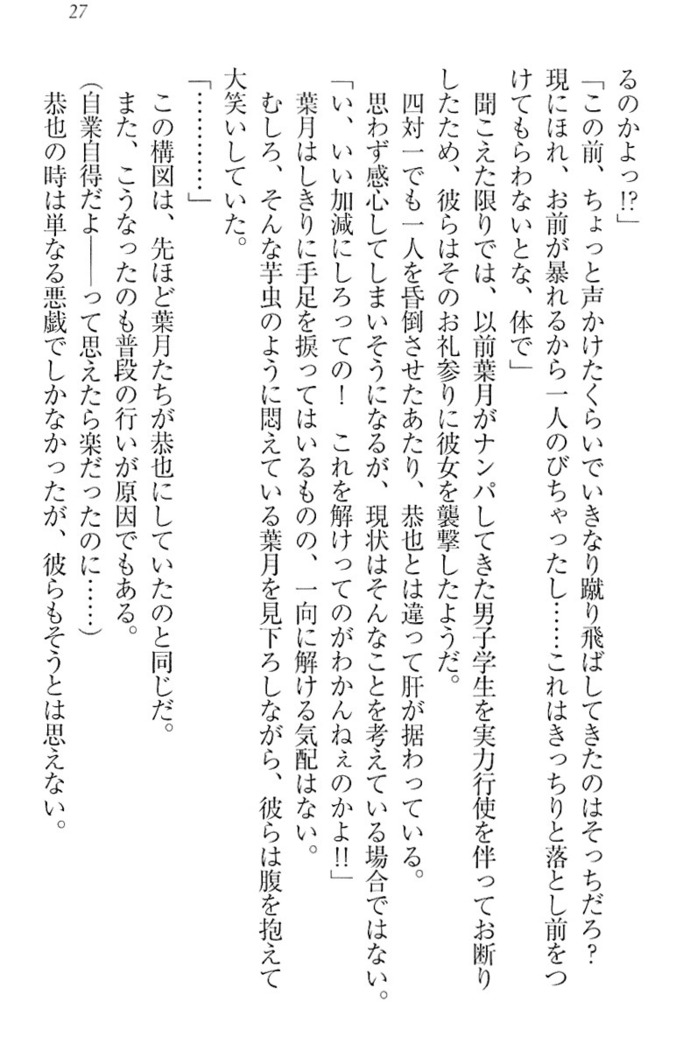 27
るのかよっ!?」
「この前、ちょっと声かけたくらいでいきなり蹴り飛ばしてきたのはそっちだろ?
現にほれ、お前が暴れるから一人のびちゃったし……これはきっちりと落とし前をつ
けてもらわないとな、体で」
聞こえた限りでは、以前葉月がナンパしてきた男子学生を実力行使を伴ってお断り
したため、彼らはそのお礼参りに彼女を襲撃したようだ。
四対一でも一人を昏倒させたあたり、恭也とは違って肝が据わっている。
思わず感心してしまいそうになるが、現状はそんなことを考えている場合ではない。
「い、いい加減にしろっての! これを解けってのがわかんねぇのかよ!!」
葉月はしきりに手足を捩ってはいるものの、一向に解ける気配はない。
むしろ、そんな芋虫のように悶えている葉月を見下ろしながら、彼らは腹を抱えて
大笑いしていた。
「…………」
この構図は、先ほど葉月たちが恭也にしていたのと同じだ。
また、こうなったのも普段の行いが原因でもある。
(自業自得だよ――って思えたら楽だったのに……)
恭也の時は単なる悪戯でしかなかったが、彼らもそうとは思えない。